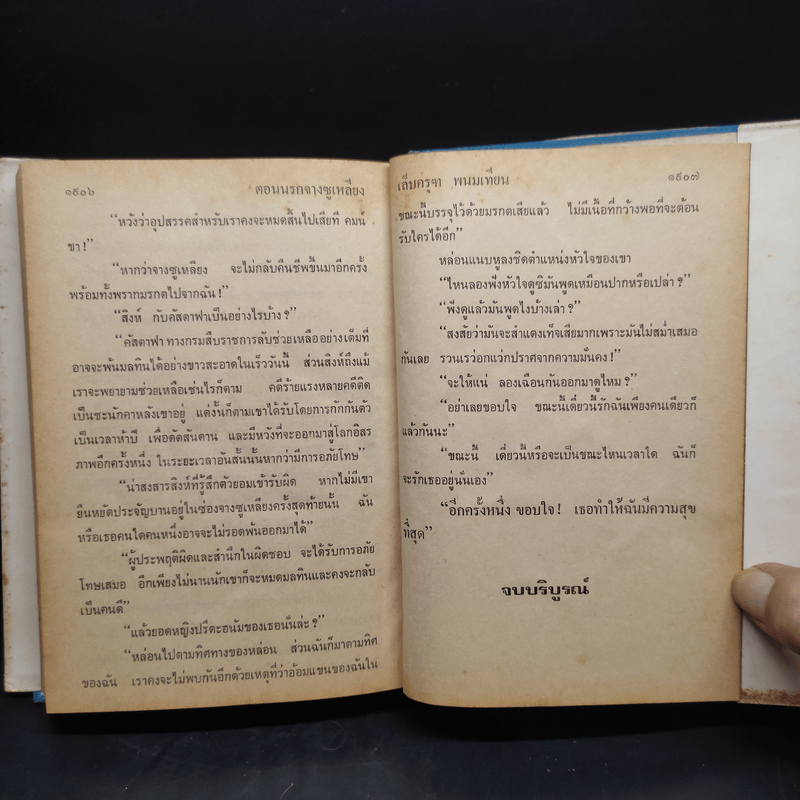 ๑๙๐๖
ตอนนรกจางซูเหลียง
“หวังว่าอุปสรรคสำหรับเราคงจะหมดสิ้นไปเสียที คมน์
ขา!”
“หากว่าจางซูเหลียง จะไม่กลับคืนชีพขึ้นมาอีกครั้ง
พร้อมทั้งพรากมรกตไปจากฉัน!”
“สิงห์ กับคัสตาฟาเป็นอย่างไรบ้าง?”
“คัสตาฟา ทางกรมสืบราชการลับช่วยเหลืออย่างเต็มที่
อาจจะพ้นมลทินได้อย่างขาวสะอาดในเร็ววันนี้ ส่วนสิงห์ถึงแม้
เราจะพยายามช่วยเหลือเช่นไรก็ตาม คดีร้ายแรงหลายคดีติด
เป็นชะนักคาหลังเขาอยู่ แต่งั้นก็ตามเขาได้รับโดยการกักกันตัว
เป็นเวลาห้าปี เพื่อดัดสันดาน และมีหวังที่จะออกมาสู่โลกอิสร
ภาพอีกครั้งหนึ่ง ในระยะเวลาอันสั้นนั้นหากว่ามีการอภัยโทษ”
“น่าสงสารสิงห์ที่รู้สึกตัวยอมเข้ารับผิด หากไม่มีเขา
ยืนหยัดประจัญบานอยู่ในซ่องจางซูเหลียงครั้งสุดท้ายนั้น ฉัน
หรือเธอคนใดคนหนึ่งอาจจะไม่รอดพ้นออกมาได้”
“ผู้ประพฤติผิดและสำนึกในผิดชอบ จะได้รับการอภัย
โทษเสมอ อีกเพียงไม่นานนักเขาก็จะหมดมลทินและคงจะกลับ
เป็นคนดี”
“แล้วยอดหญิงปรีดะฮนัมของเธอนั่นล่ะ?”
“หล่อนไปตามทิศทางของหล่อน ส่วนฉันก็มาตามทิศ
ของฉัน เราคงจะไม่พบกันอีกด้วยเหตุที่ว่าอ้อมแขนของฉันใน
เล็บครุฑ พนมเทียน
๑๙๐๗
ขณะนี้บรรจุไว้ด้วยมรกตเสียแล้ว ไม่มีเนื้อที่กว้างพอที่จะต้อน
รับใครได้อีก”
หล่อนแนบหูลงชิดตำแหน่งหัวใจของเขา
“ไหนลองฟังหัวใจดูซิมันพูดเหมือนปากหรือเปล่า?”
“ฟังดูแล้วมันพูดไงบ้างเล่า?”
“สงสัยว่ามันจะสำแดงเท็จเสียมากเพราะมันไม่สม่ำเสมอ
กันเลย รวนเรว่อกแว่กปราศจากความมั่นคง!”
“จะให้แน่ ลองเฉือนกันออกมาดูไหม?”
“อย่าเลยขอบใจ ขณะนี้เดี๋ยวนี้รักฉันเพียงคนเดียวก็
แล้วกันนะ”
“ขณะนี้ เดี๋ยวนี้หรือจะเป็นขณะไหนเวลาใด ฉันก็
จะรักเธออยู่นั่นเอง”
“อีกครั้งหนึ่ง ขอบใจ! เธอทำให้ฉันมีความสุข
ที่สุด”
จบบริบูรณ์